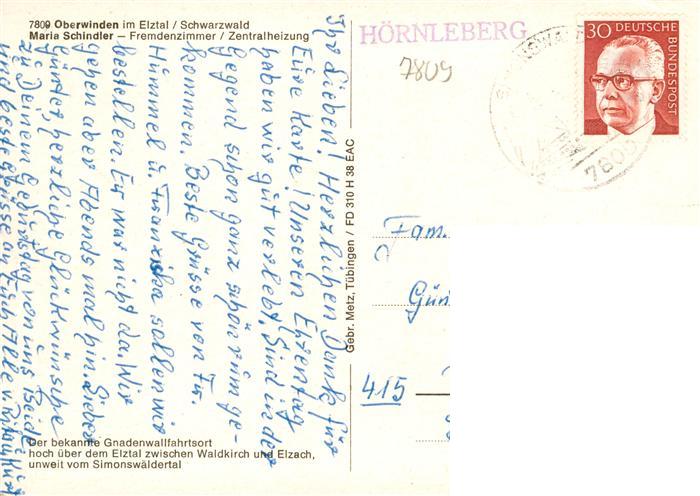 7809 Oberwinden im Elztal / Schwarzwald
Maria Schindler – Fremdenzimmer / Zentralheizung
HÖRNLEBERG
7809
30 DEUTSCHE
BUNDESPOST
7809
Ihr Lieben! Herzlichen Dank für
Eure Karte! Unseren Ehrentag
haben wir gut verlebt. Sind in der
Gegend schon ganz schön rumge-
kommen. Beste Grüsse von
Himmel u. Franziska sollen wir
bestellen. Er war nicht da. Wir
gehen aber Abends mal hin. Lieber
Günter, herzliche Glückwünsche
zu Deinem Geburtstag von uns Beide
und beste Grüsse an Euch Alle v.
Gebr. Metz, Tübingen / FD 310 H 38 EAC
Fam.
Gün
415
Der bekannte Gnadenwallfahrtsort
hoch über dem Elztal zwischen Waldkirch und Elzach,
unweit vom Simonswäldertal